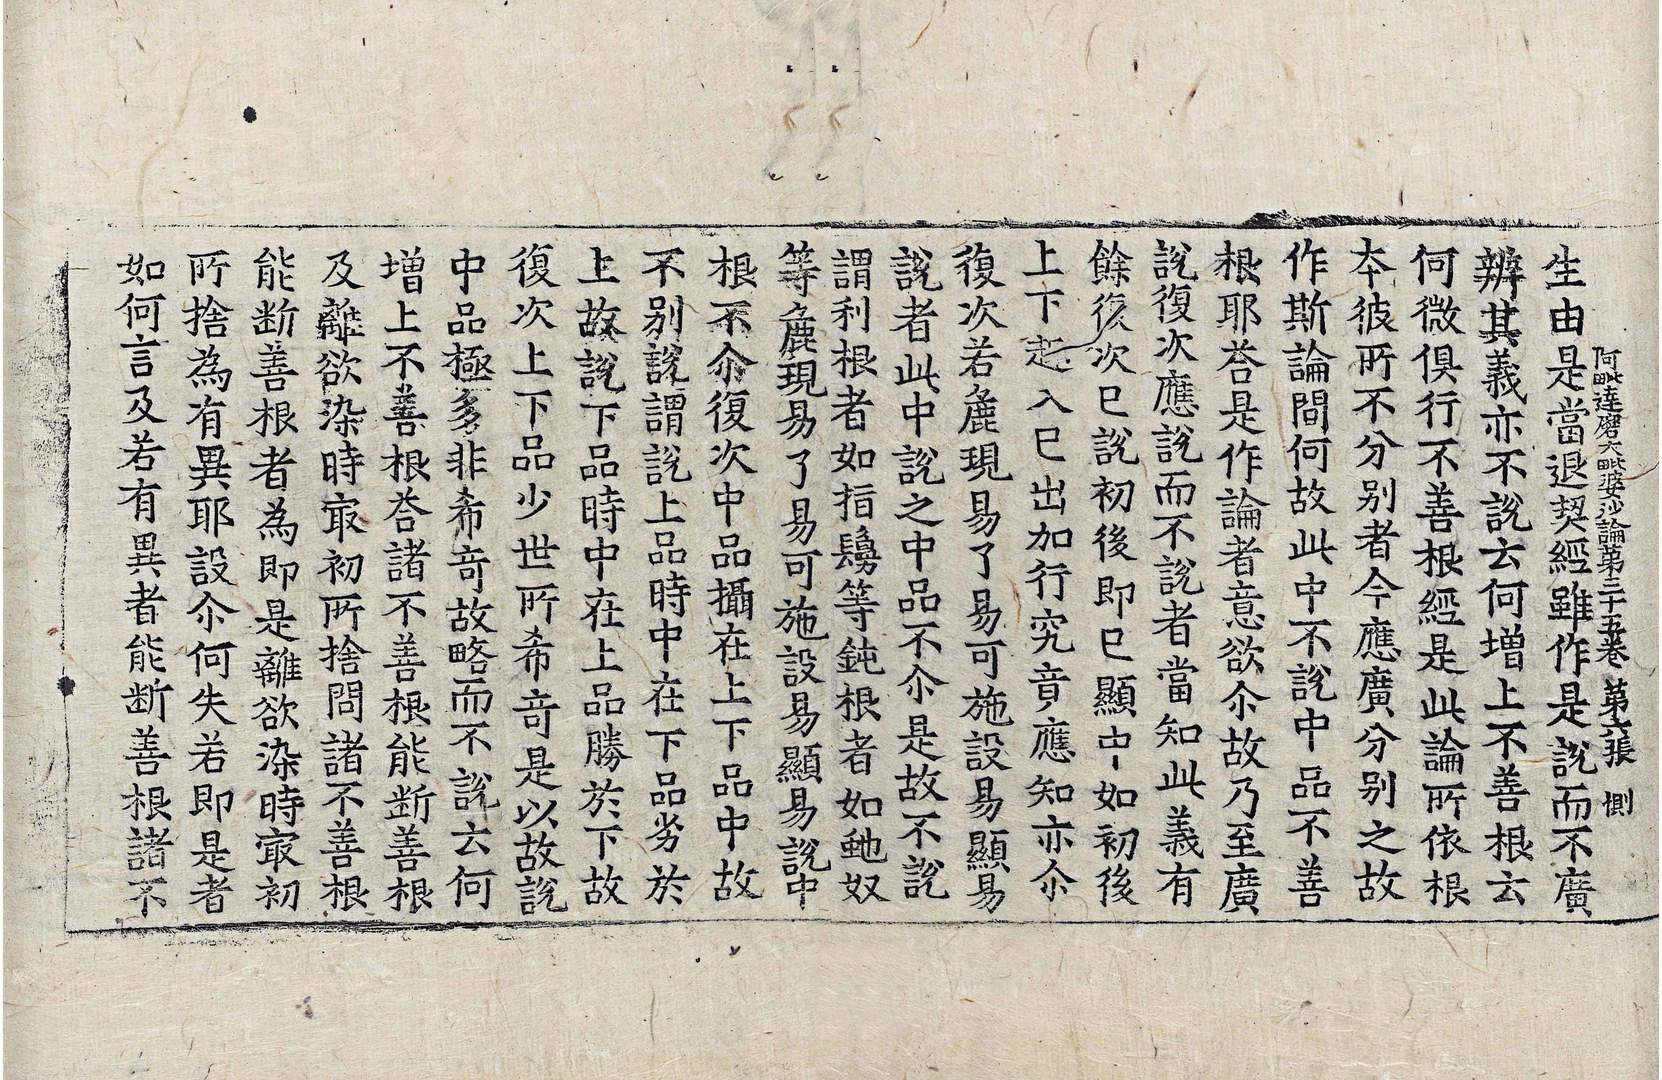 阿毗達磨大毗婆沙論第三十五卷 第六張 惻
生由是當退契經雖作是說而不廣
辨其義亦不說云何增上不善根云
何微俱行不善根經是此論所依根
本彼所不分别者今應廣分别之故
作斯論問何故此中不說中品不善
根耶荅是作論者意欲尒故乃至廣
說復次應說而不說者當知此義有
餘復次已說初後即已顯中如初後
上下起入已出加行究竟應知亦尒
復次若麁現易了易可施設易顯易
說者此中說之中品不尒是故不說
謂利根者如指鬘等鈍根者如虵奴
等麁現易了易可施設易顯易說中
根不尒復次中品攝在上下品中故
不别說謂說上品時中在下品劣於
上故說下品時中在上品勝於下故
復次上下品少世所希竒是以故說
中品極多非希竒故略而不說云何
增上不善根荅諸不善根能断善根
及離欲染時㝡初所捨問諸不善根
能断善根者為即是離欲染時㝡初
所捨為有異耶設尒何失若即是者
如何言及若有異者能断善根諸不